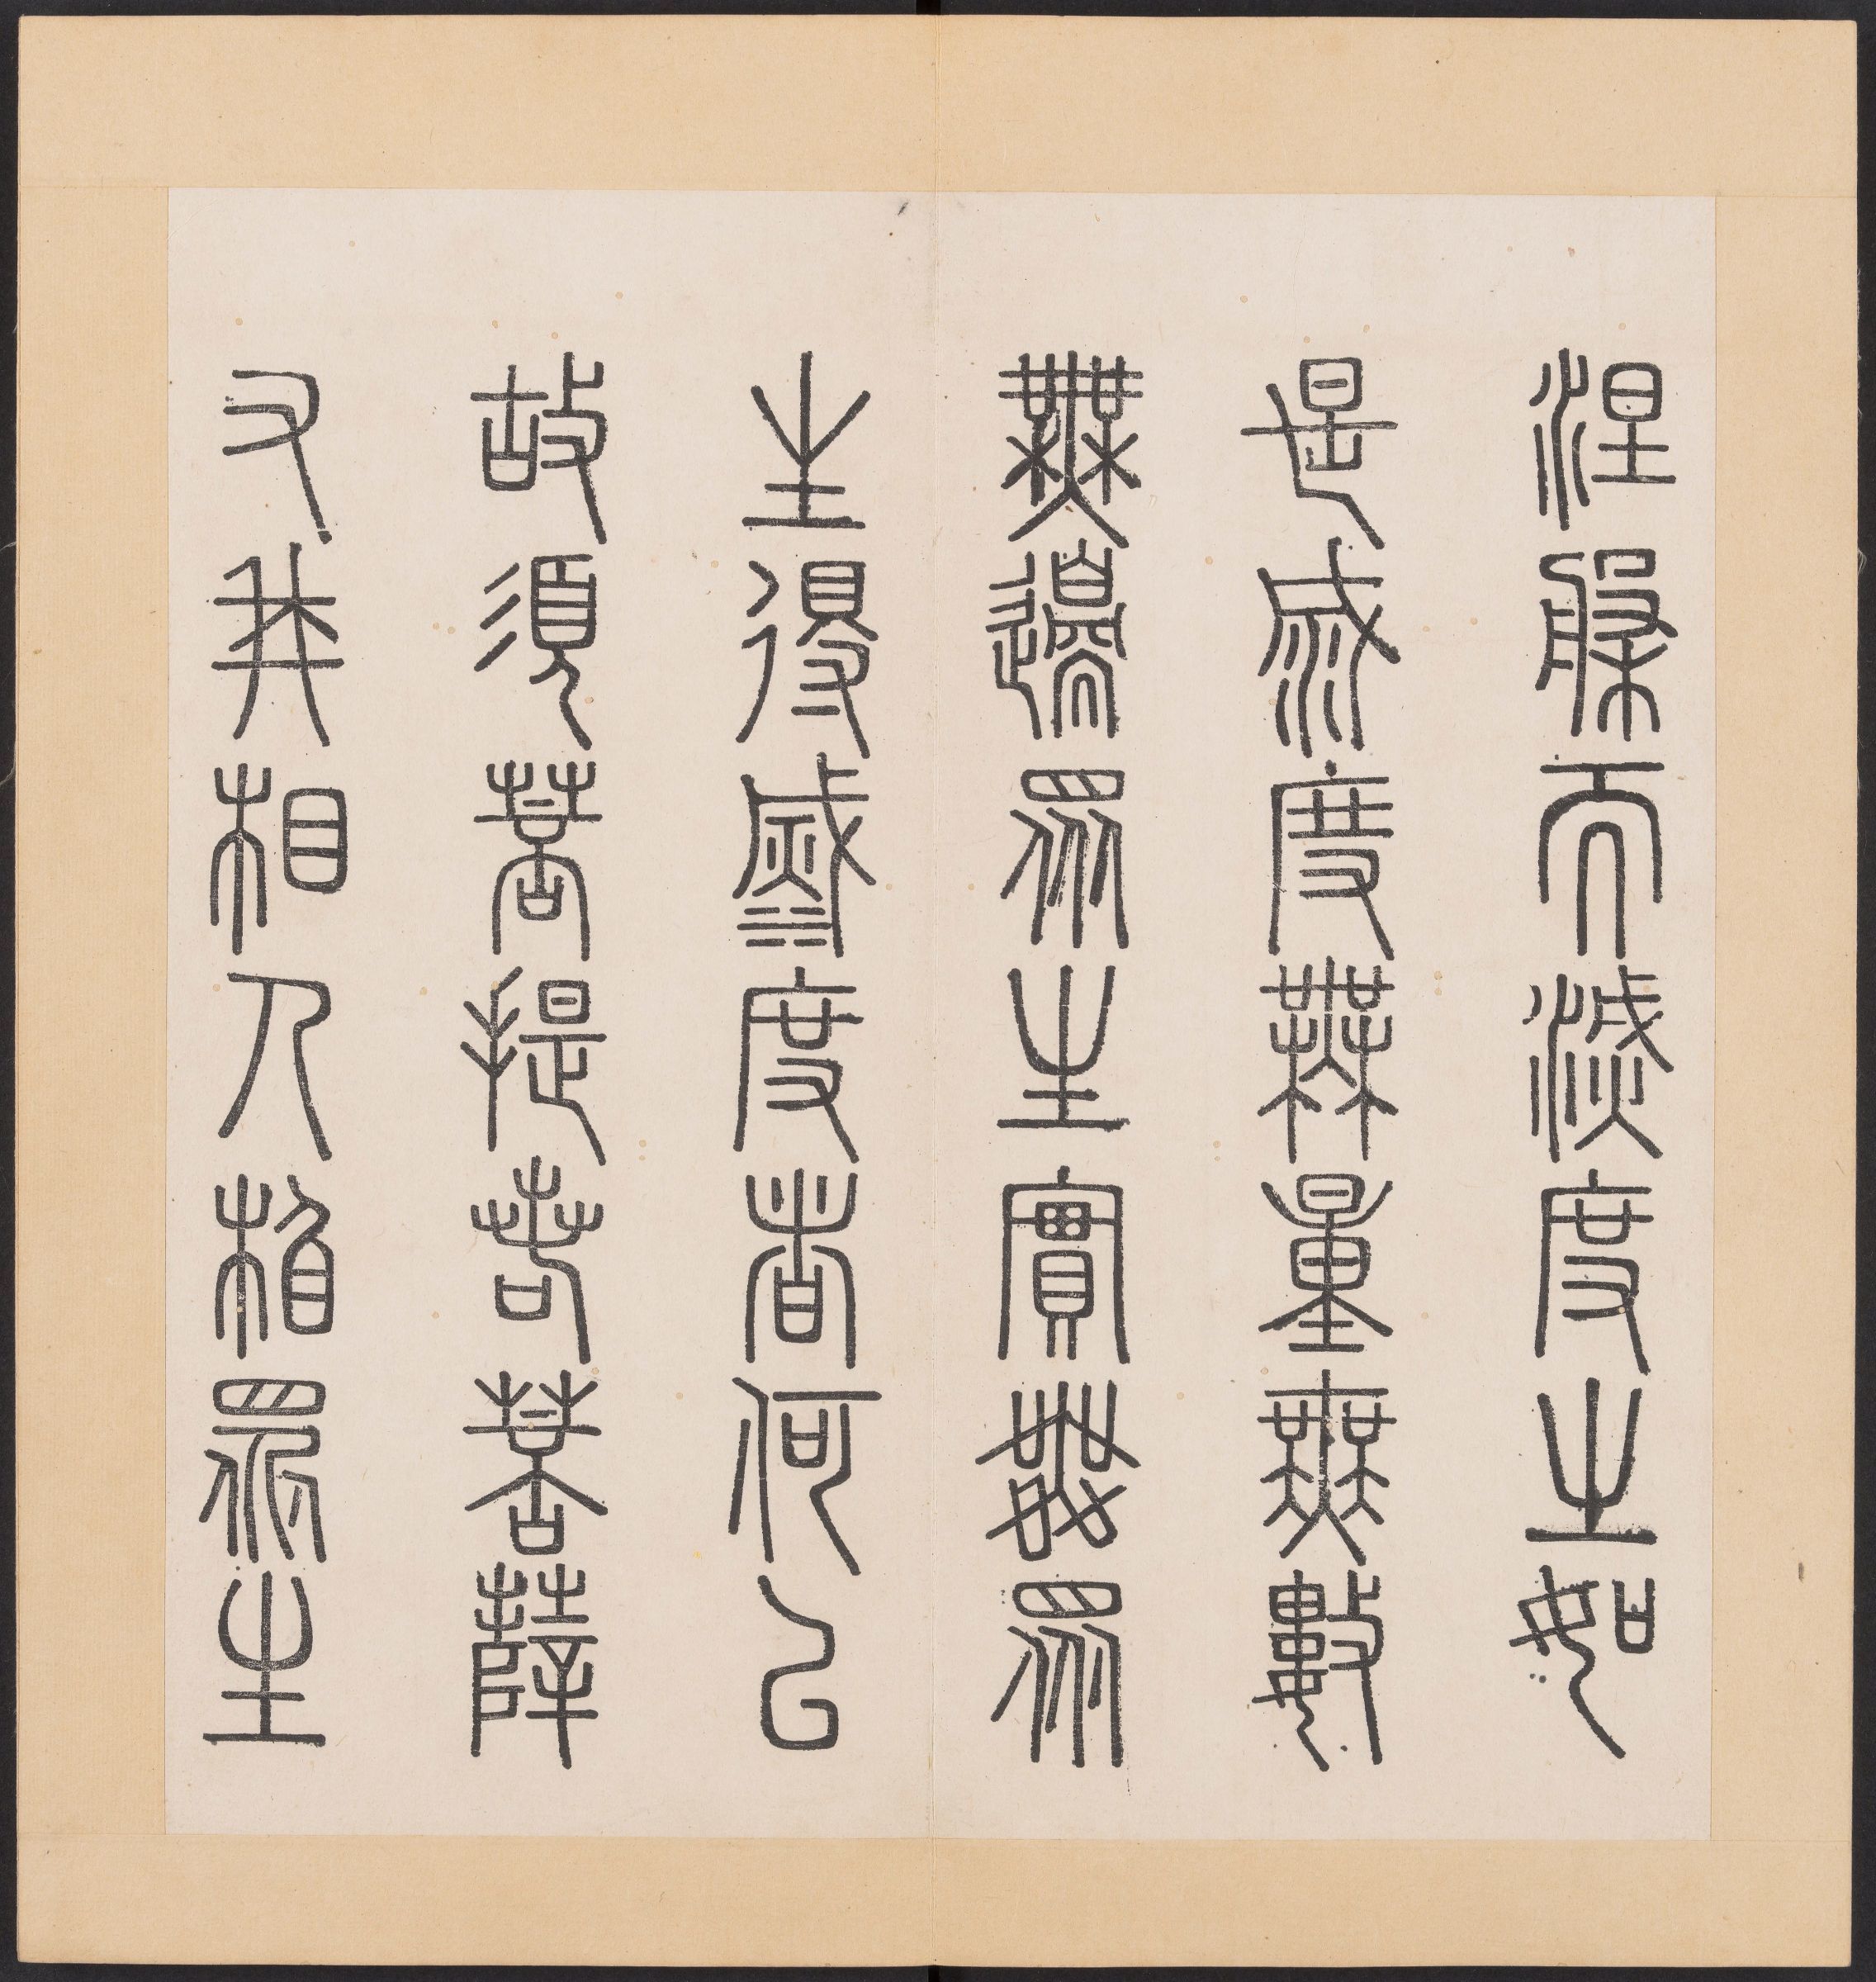 涅槃而滅度之如
是滅度無量無數
無邊眾生實無眾
生得滅度者何以
故須菩提若菩薩
有我相人相眾生